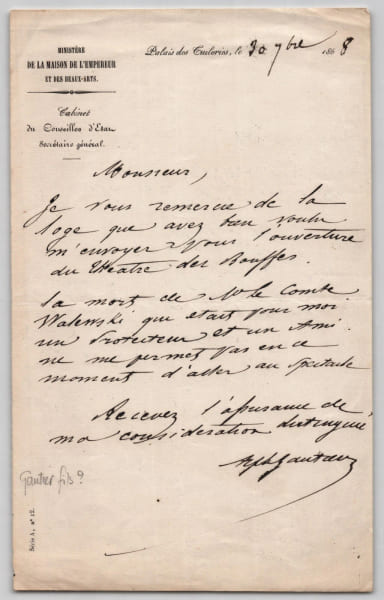 MINISTÈRE
DE LA MAISON DE L'EMPEREUR
ET DES BEAUX-ARTS.
Palais des Tuileries, le 30 7bre 1868
Cabinet
du Conseiller d'Etat
Secrétaire général.
Monsieur,
Je vous remercie de la
loge que avez bien voulu
m'envoyer pour l'ouverture
du théatre des Bouffes.
La mort de Mr le Comte
Walewski qui était pour moi
un Protecteur et un Ami
ne me permet pas en ce
moment d'aller au spectacle
Recevez l'assurance de
ma considération distinguée
Gautier
Gautier fils?
Série A, n° 12.